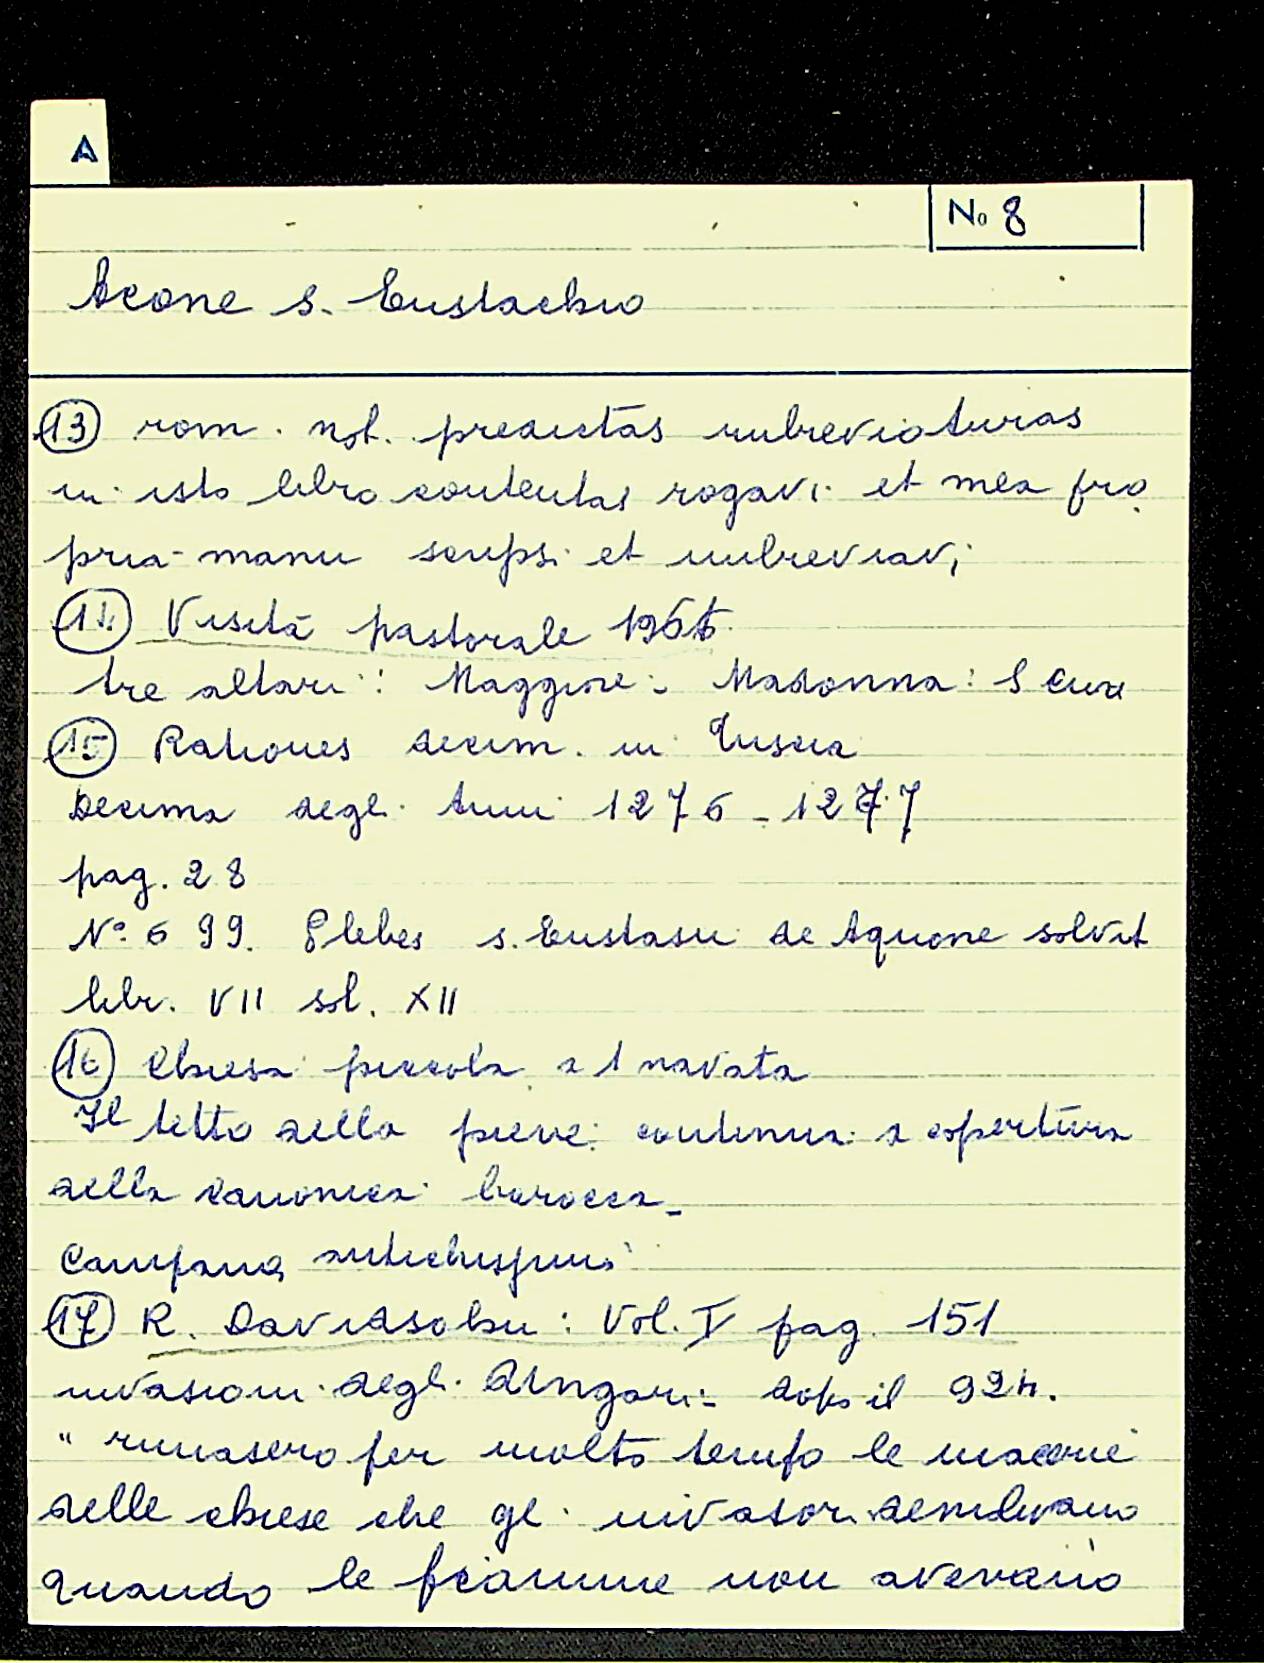 A
No 8
Acone s. Eustachio
13 rom. not. predictas imbreviaturas
in isto libro contentas rogavi et mea pro
pria manu scripsi et imbreviavi
14 Visita pastorale
tre altari: Maggiore: Madonna: S
15 Rationes decim. in Tuscia
Decima degli Anni 1276 - 1277
pag. 28
N° 699. Plebes s. Eustasii de Aquone solvit
libr. VII sol. XII
16 Chiesa piccola a 1 navata
Il tetto della pieve continua a copertura
della canonica barocca -
Campana
17 R. Davidsohn: Vol. I pag. 151
invasioni degli Ungari: dopo il 924.
" rimasero per molto tempo le macerie
delle chiese che gli invasori demolivano
quando le fiamme non avevano